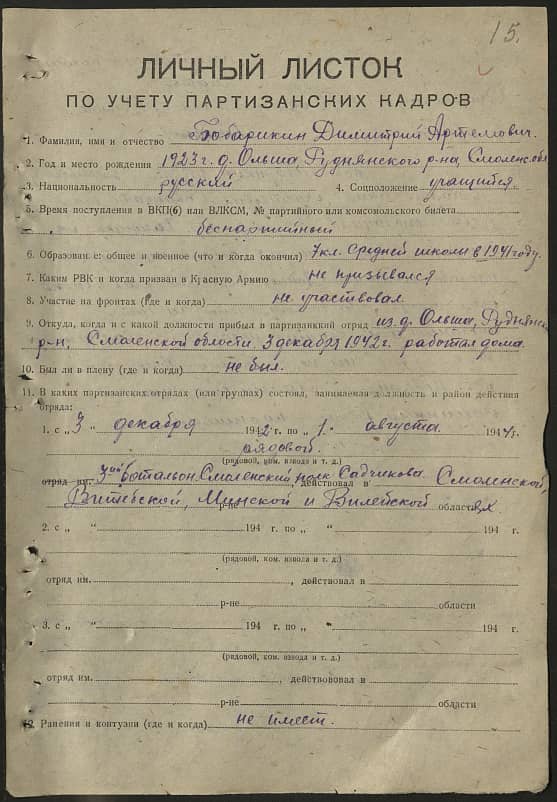 15.
ЛИЧНЫЙ ЛИСТОК
ПО УЧЕТУ ПАРТИЗАНСКИХ КАДРОВ
1. Фамилия, имя и отчество Бобарикин Димитрий Артемович.
2. Год и место рождения 1923 г. д. Ольша, Руднянского р-на, Смоленс. обл
3. Национальность русский 4. Соцположение учащийся.
5. Время поступления в ВКП(б) или ВЛКСМ, № партийного или комсомольского билета
беспартийный
6. Образование: общее и военное (что и когда окончил) 7 кл. Средней школы в 1941 году.
7. Каким РВК и когда призван в Красную Армию не призывался
8. Участие на фронтах (где и когда) не участвовал
9. Откуда, когда и с какой должности прибыл в партизанский отряд из д. Ольша, Руднянск.
р-н, Смоленской области, 3 декабря 1942 г. работал дома.
10. Был ли в плену (где и когда) не был.
11. В каких партизанских отрядах (или группах) состоял, занимаемая должность и район действия
отряда:
1. с „ 3 " декабря 1942 г. по „ 1. " августа 1944 г.
рядовой.
(рядовой, ком. взвода и т. д.)
отряд им. 3ий батальон Смоленский полк Садчикова, действовал в Смоленской,
Витебской, Минской и Вилейской р-не областях
2. с „ " 194 г. по „ " 194 г.
(рядовой, ком. взвода и т. д.)
отряд им. , действовал в
р-не области
3. с „ " 194 г. по „ " 194 г.
(рядовой, ком. взвода и т. д.)
отряд им. , действововал в
р-не области
12. Ранения и контузии (где и когда) не имеет.